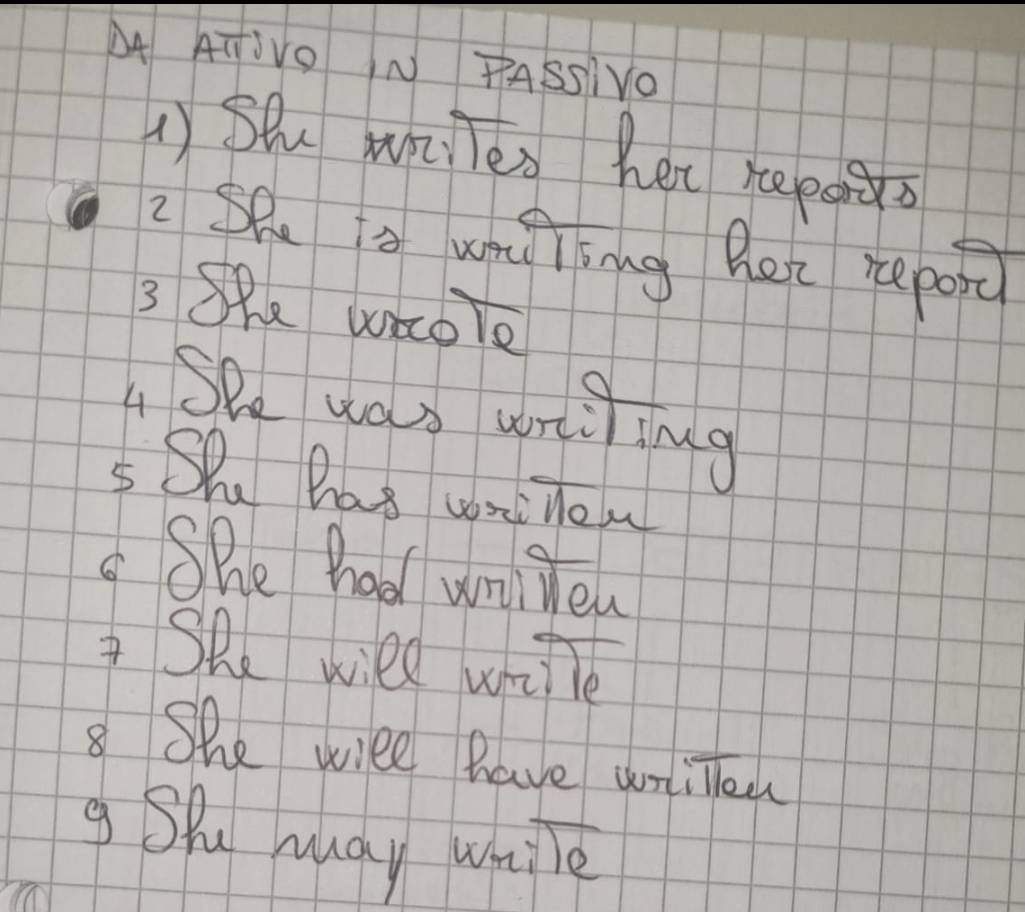 DA ATTIVO IN PASSIVO
1) She writes her reports
2 She is writing her report
3 She wrote
4 She was writing
5 She has written
6 She had written
7 She will write
8 She will have written
9 She may write